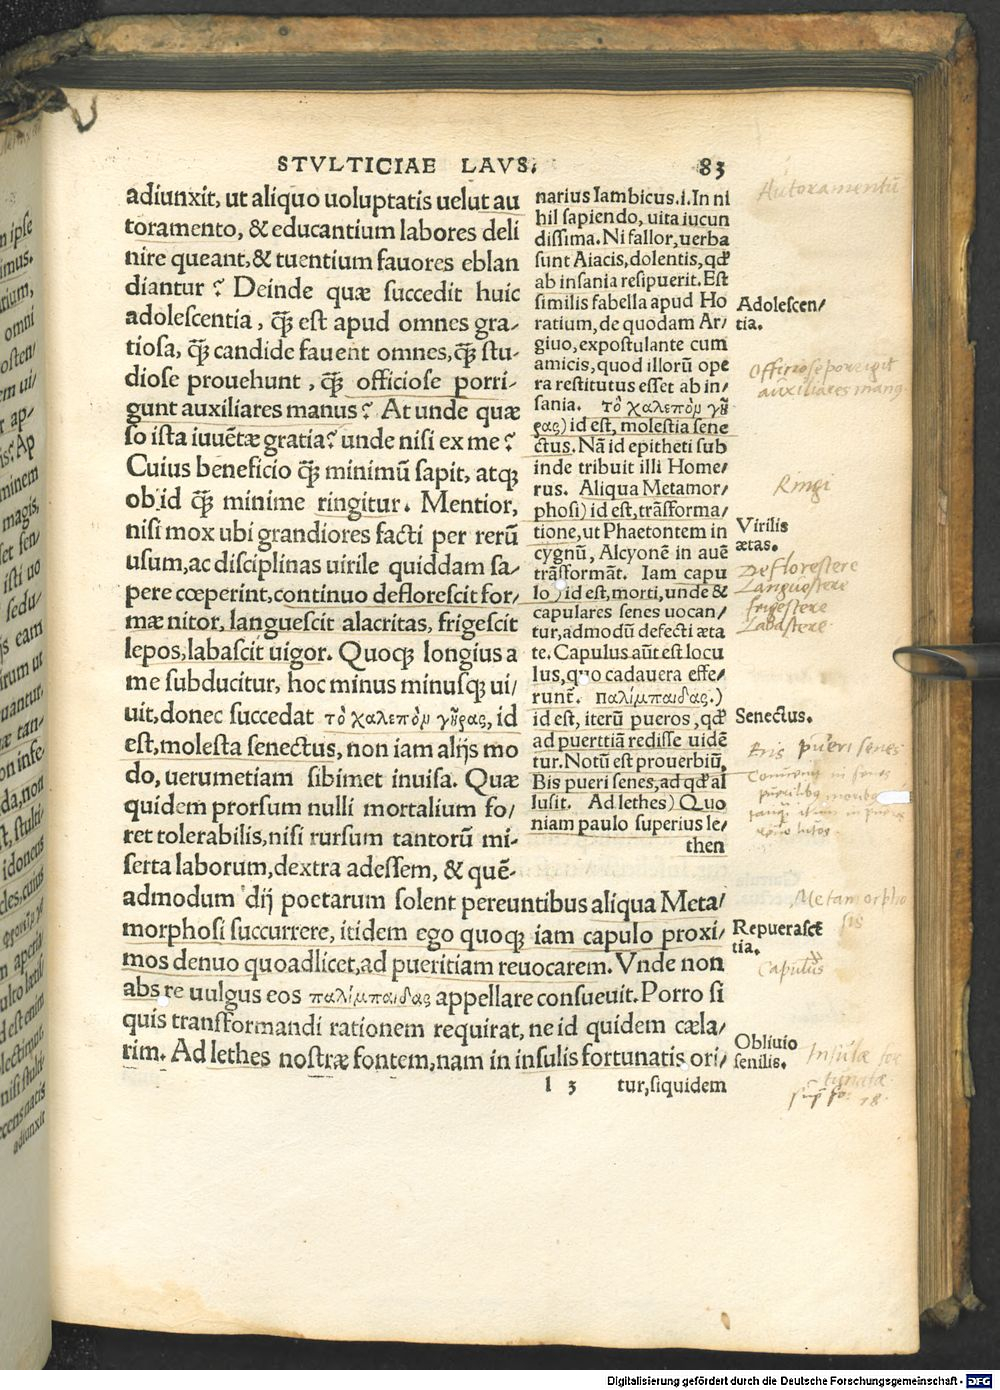 STVLTICIAE LAVS. 83
adiunxit, ut aliquo uoluptatis uelut au
toramento, & educantium labores deli
nire queant, & tuentium fauores eblan
diantur? Deinde quæ succedit huic
adolescentia, q̃ꝫ est apud omnes gra-
tiosa, q̃ꝫ candide fauent omnes, q̃ꝫ stu-
diose prouehunt, q̃ꝫ officiose porri-
gunt auxiliares manus? At unde quæ
so ista iuuẽtæ gratia? unde nisi ex me?
Cuius beneficio q̃ꝫ minimũ sapit, atqꝫ
ob id q̃ꝫ minime ringitur. Mentior,
nisi mox ubi grandiores facti per rerũ
usum, ac disciplinas uirile quiddam sa/
pere cœperint, continuo deflorescit for/
mæ nitor, languescit alacritas, frigescit
lepos, labascit uigor. Quoqꝫ longius a
me subducitur, hoc minus minusqꝫ ui/
uit, donec succedat τὸ χαλεπὸμ γῆρας, id
est, molesta senectus, non iam alijs mo
do, uerumetiam sibimet inuisa. Quæ
quidem prorsum nulli mortalium fo/
ret tolerabilis, nisi rursum tantorũ mi-
serta laborum, dextra adessem, & quẽ-
admodum dij poetarum solent pereuntibus aliqua Meta/
morphosi succurrere, itidem ego quoqꝫ iam capulo proxi/
mos denuo quoadlicet, ad pueritiam reuocarem. Vnde non
abs re uulgus eos παλίμπαιδας appellare consueuit. Porro si
quis transformandi rationem requirat, ne id quidem cæla/
rim. Ad lethes nostræ fontem, nam in insulis fortunatis ori/
l 3 tur, siquidem
narius Iambicus.i. In ni
hil sapiendo, uita iucun
dissima. Ni fallor, uerba
sunt Aiacis, dolentis, qđ
ab insania resipuerit. Est
similis fabella apud Ho
ratium, de quodam Ar/
giuo, expostulante cum
amicis, quod illorũ ope
ra restitutus esset ab in/
sania. τὸ χαλεπὸμ γῆ
ρας) id est, molestia sene
ctus. Nã id epitheti sub
inde tribuit illi Home/
rus. Aliqua Metamor/
phosi) id est, trãsforma/
tione, ut Phaetontem in
cygnũ, Alcyonẽ in auẽ
trãsformãt. Iam capu
lo) id est, morti, unde &
capulares senes uocan/
tur, admodũ defecti æta
te. Capulus aũt est locu
lus, quo cadauera effe/
runt̃. παλίμπαιδας.)
id est, iterũ pueros, qđ
ad puerttiã redisse uidẽ
tur. Notũ est prouerbiũ,
Bis pueri senes, ad qđ al
lusit. Ad lethes) Quo
niam paulo superius le/
then
Adolescen/
tia.
Virilis
ætas.
Senectus.
Repuerasct
tia.
Obliuio
senilis.
Autoramentũ
Officiose porrigit
auxiliares man9
Ringi
Deflorescere
Languescere
frigescere
Labascere
pueri senes
Metamorpho
sis
Capulus
Insulæ for
tunatæ
18.
Digitalisierung gefördert durch die Deutsche Forschungsgemeinschaft - DFG